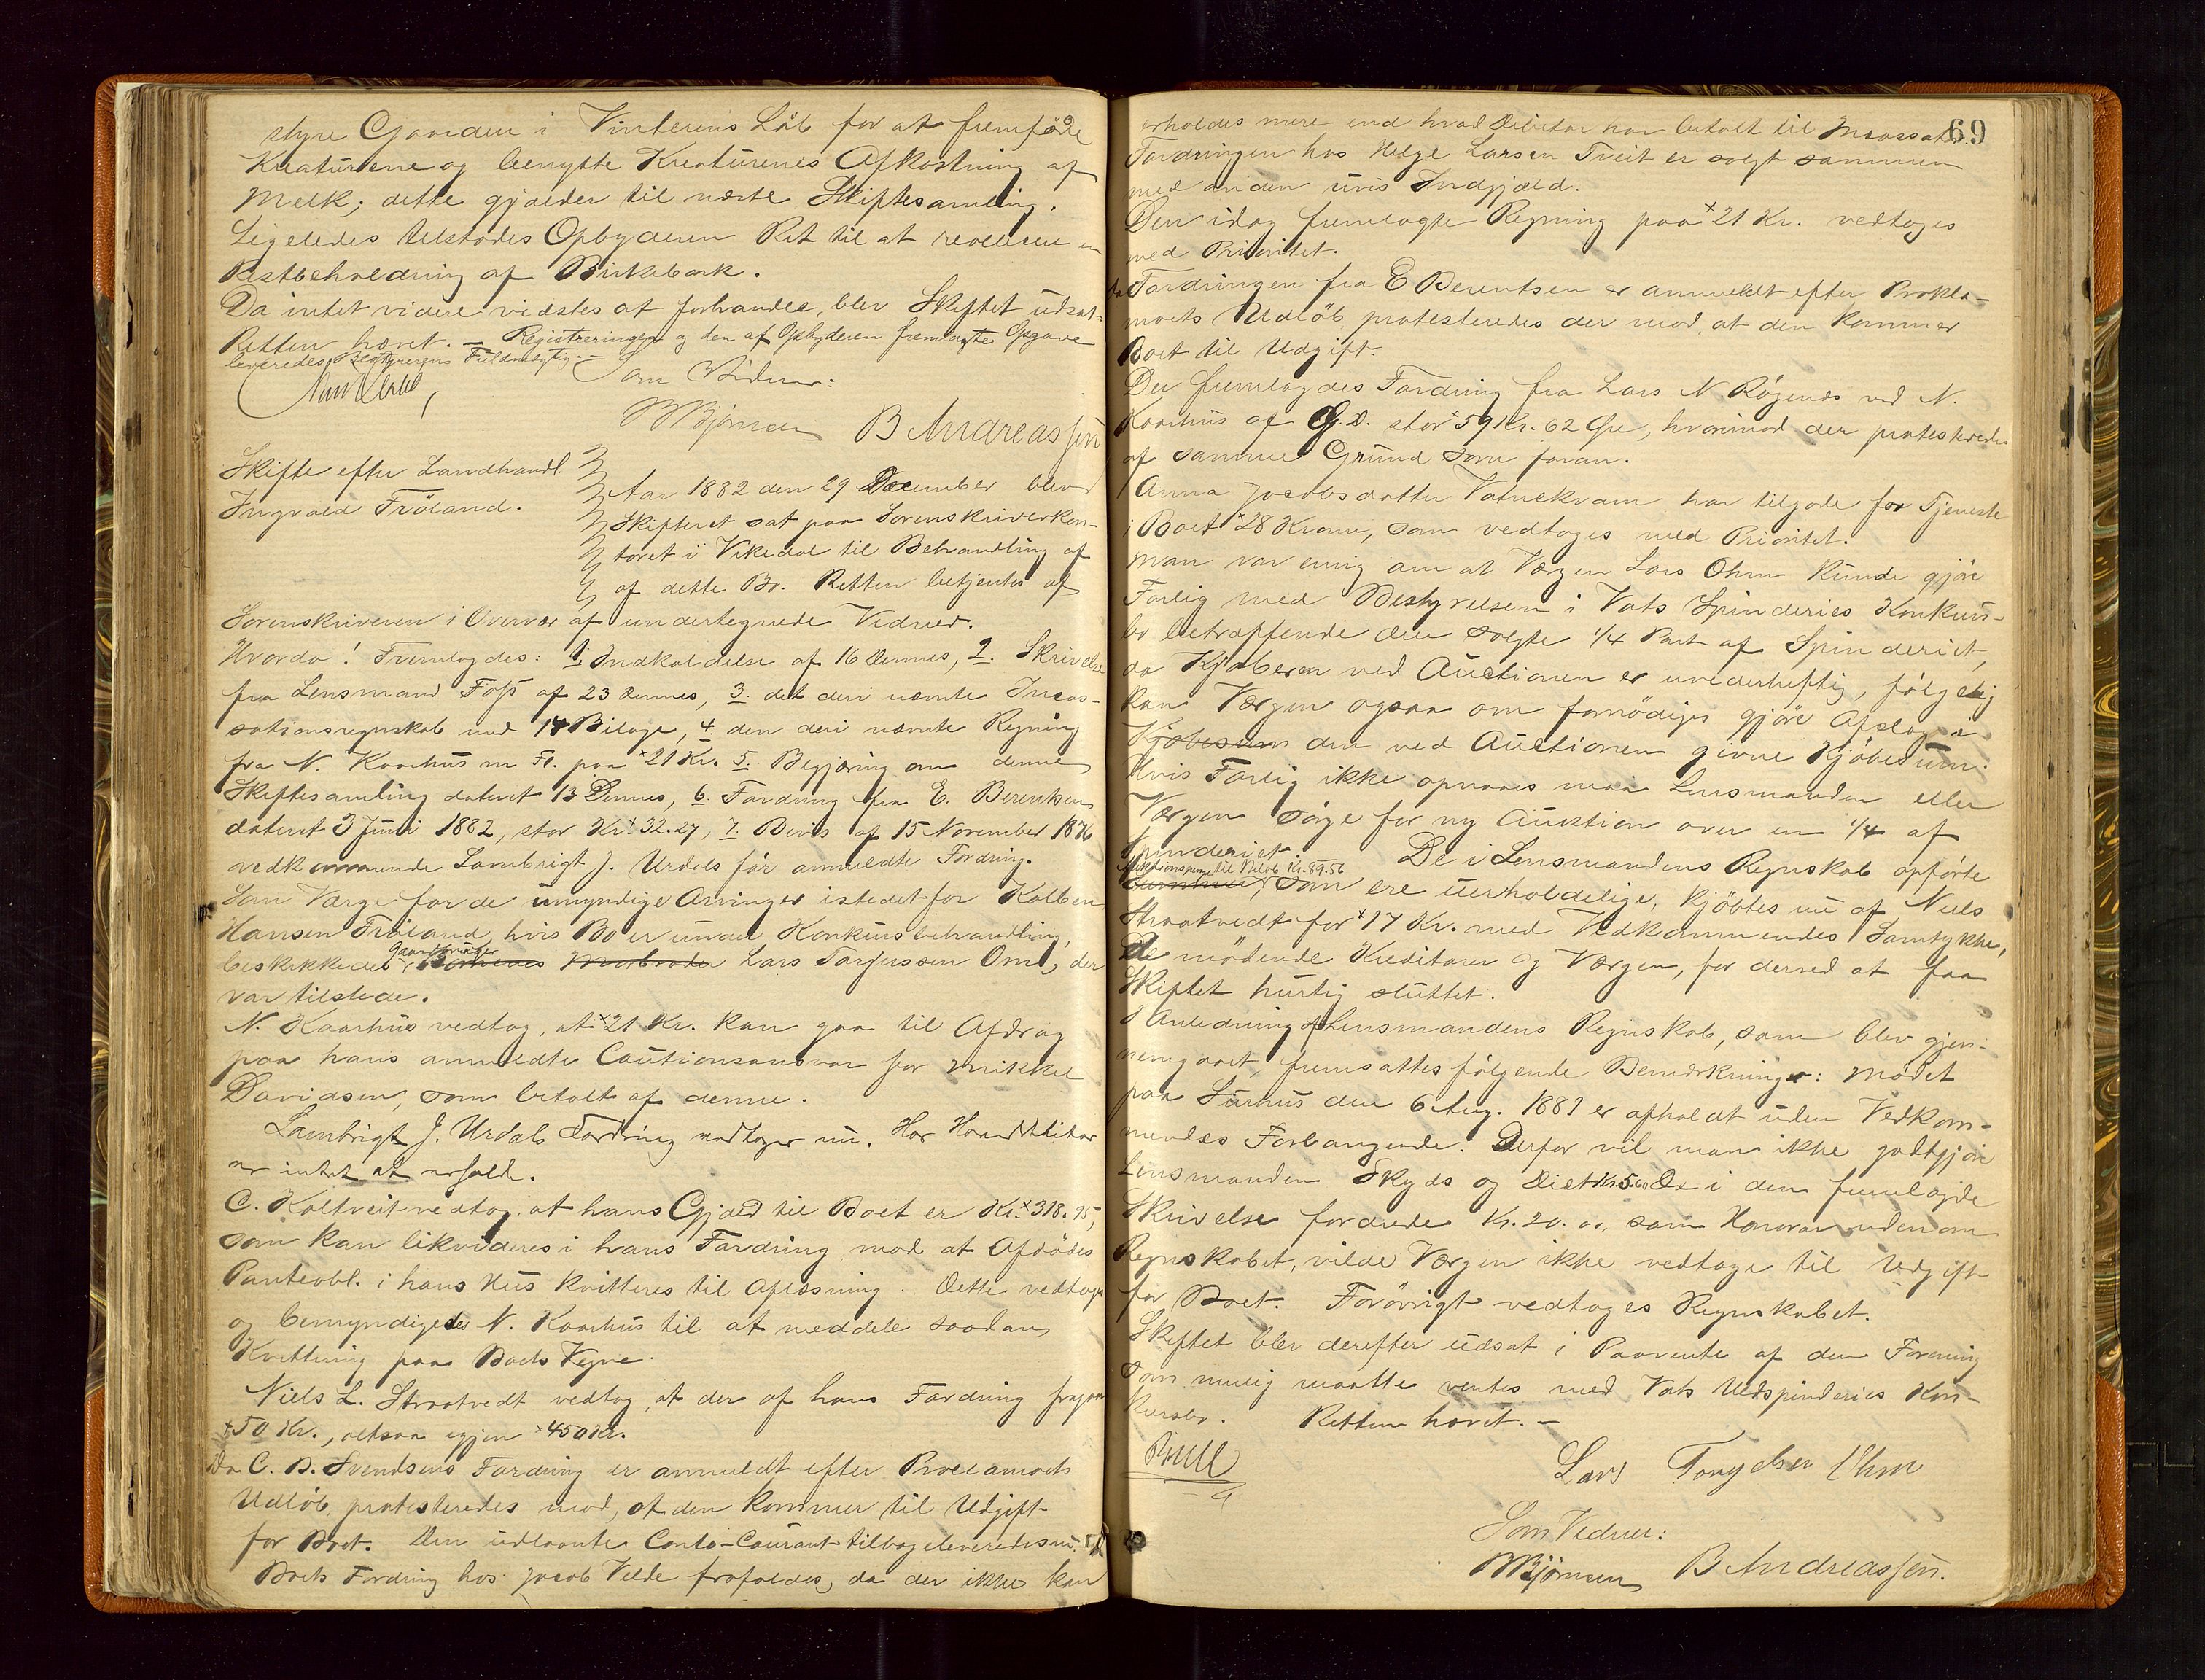 styre Gaarden i Vinterens Løb for at fremføde
Kreaturene og benytte Kreaturenes Afkastning af
Melk; dette gjælder til næste Skiftesamling.
Ligeledes tilstodes Opbyderen Ret til at realisere en
Restbeholdning af Birkebark.
Da intet videre vidstes at forhandle, blev Skiftet udsat.
Retten hævet. — Registreringen og den af Opbyderen fremlagte Opgave
leveredes Bestyrerens Fuldmægtig. —
Som Vidner:
MBjørnsen B Andreassen
Skifte efter Landhandl.
Ingvald Frøland.
Aar 1882 den 29 December blev
Skifteret sat paa Sorenskriverkon-
toret i Vikedal til Behandling af
af dette Bo. Retten betjentes af
Sorenskriveren i Overvær af undertegnede Vidner.
Hvorda! Fremlagdes: 1. Indkaldelse af 16 Dennes, 2. Skrivelse
fra Lensmand Foss af 23 Dennes, 3. det deri nævnte Incas-
sationsregnskab med 14 Bilage, 4. den deri nævnte Regning
fra N. Kaarhus m Fl. paa 21 Kr. 5. Begjæring om denne
Skiftesamling dateret 13 Dennes, 6. Fordring fra E. Berentsen
dateret 3 Juni 1882, stor Kr. 32.27, 7. Bevis af 15 November 1876
vedkommende Lambrigt J. Urdals før anmeldte Fordring.
Som Værge for de umyndige Arvinger istedetfor Kolben
Hansen Frøland, hvis Bo er under Konkursbehandling,
beskikkedes Gaardbruger Lars Torjerssen Omt, der
var tilstede.
N. Kaarhus vedtog, at 21 Kr. kan gaa til Afdrag
paa hans anmeldte Cautionsansvar for Mikkel
Davidsen, som betalt af denne.
Lambrigt J. Urdals Fordring vedtoges nu. Hos
er intet at erholde.
C. Koltveit vedtog, at hans Gjæld til Boet er Kr. 318.95,
som kan likvideres i hans Fordring mod at Afdødes
Panteobl. i hans Hus kvitteres til Aflæsning. Dette vedtoges
og bemyndigedes N. Kaarhus til at meddele saadan
Kvittering paa Boets Vegne.
Niels L. Straatvedt vedtog, at der af hans Fordring fragaar
50 Kr., altsaa igjen 450 Kr.
Da C. B. Svendsens Fordring er anmeldt efter Proclamaets
Udløb, protesteredes mod, at den kommer til Udgift
for Boet. Den udlaante Conto-Courant tilbageleveredes nu.
Boets Fordring hos Jacob Velde frafaldes, da der ikke kan
69
erholdes mere end hvad Debitor har betalt til
Fordringen hos Helge Larsen Tveit er solgt sammen
med anden uvis Indgjæld.
Den idag fremlagte Regning paa 21 Kr. vedtoges
med Prioritet.
Da Fordringen fra E Berentsen er anmeldt efter Prokla-
maets Udløb protesteredes der mod, at den kommer
Boet til Udgift.
Der fremlagdes Fordring fra Lars N. Røgenes ved N.
Kaarhus af G.D. stor 59 Kr. 62 Øre, hvorimod der protesteredes
af samme Grund som foran.
Anna Jacobsdatter Vatnekvam har tilgode for Tjeneste
i Boet 28 Kroner, som vedtoges med Prioritet.
Man var enig om at Værgen Lars Ohm kunde gjøre
Forlig med Bestyrelsen i Vats Spinderies Konkurs-
bo betræffende den solgte 1/4 Part af Spinderiet,
da Kjøberen ved Auctionen er uvederheftig, følgelig
kan Værgen ogsaa om fornødiges gjøre Afslag i
Kjøbesum den ved Auctionen givne Kjøbesum.
Hvis Forlig ikke opnaaes maa Lensmanden eller
Værgen sørge for ny Auktion over en 1/4 af
Spinderiet. De i Lensmandens Regnskab opførte
Auktionspenge til Beløb Kr. 89.56
som ere uerholdelige, kjøbtes nu af Niels
Straatvedt for 17 Kr. med Vedkommendes Samtykke,
de mødende Kreditorer og Værgen, for derved at faa
Skiftet hurtig sluttet.
I Anledning af Lensmandens Regnskab, som blev gjen-
nemgaaet, fremsattes følgende Bemærkninger: Mødet
paa Sørhus den 6 Aug. 1881 er afholdt uden Vedkom-
mendes Forlangende. Derfor vil man ikke godtgjøre
Lensmanden Skyds og Diet De i den fremlagde
Skrivelse fordrede Kr. 20.00, som Honorar udenom
Regnskabet, vilde Værgen ikke vedtage til Udgift
for Boet. Forøvrigt vedtoges Regnskabet.
Skiftet blev derefter udsat i Paavente af den Forening
som mulig maatte ventes med Vats Uldspinderies Kon-
kursbo. Retten hævet. —
Lars Torgersen Ohm
Som Vidner:
MBjørnsen B Andreassen.